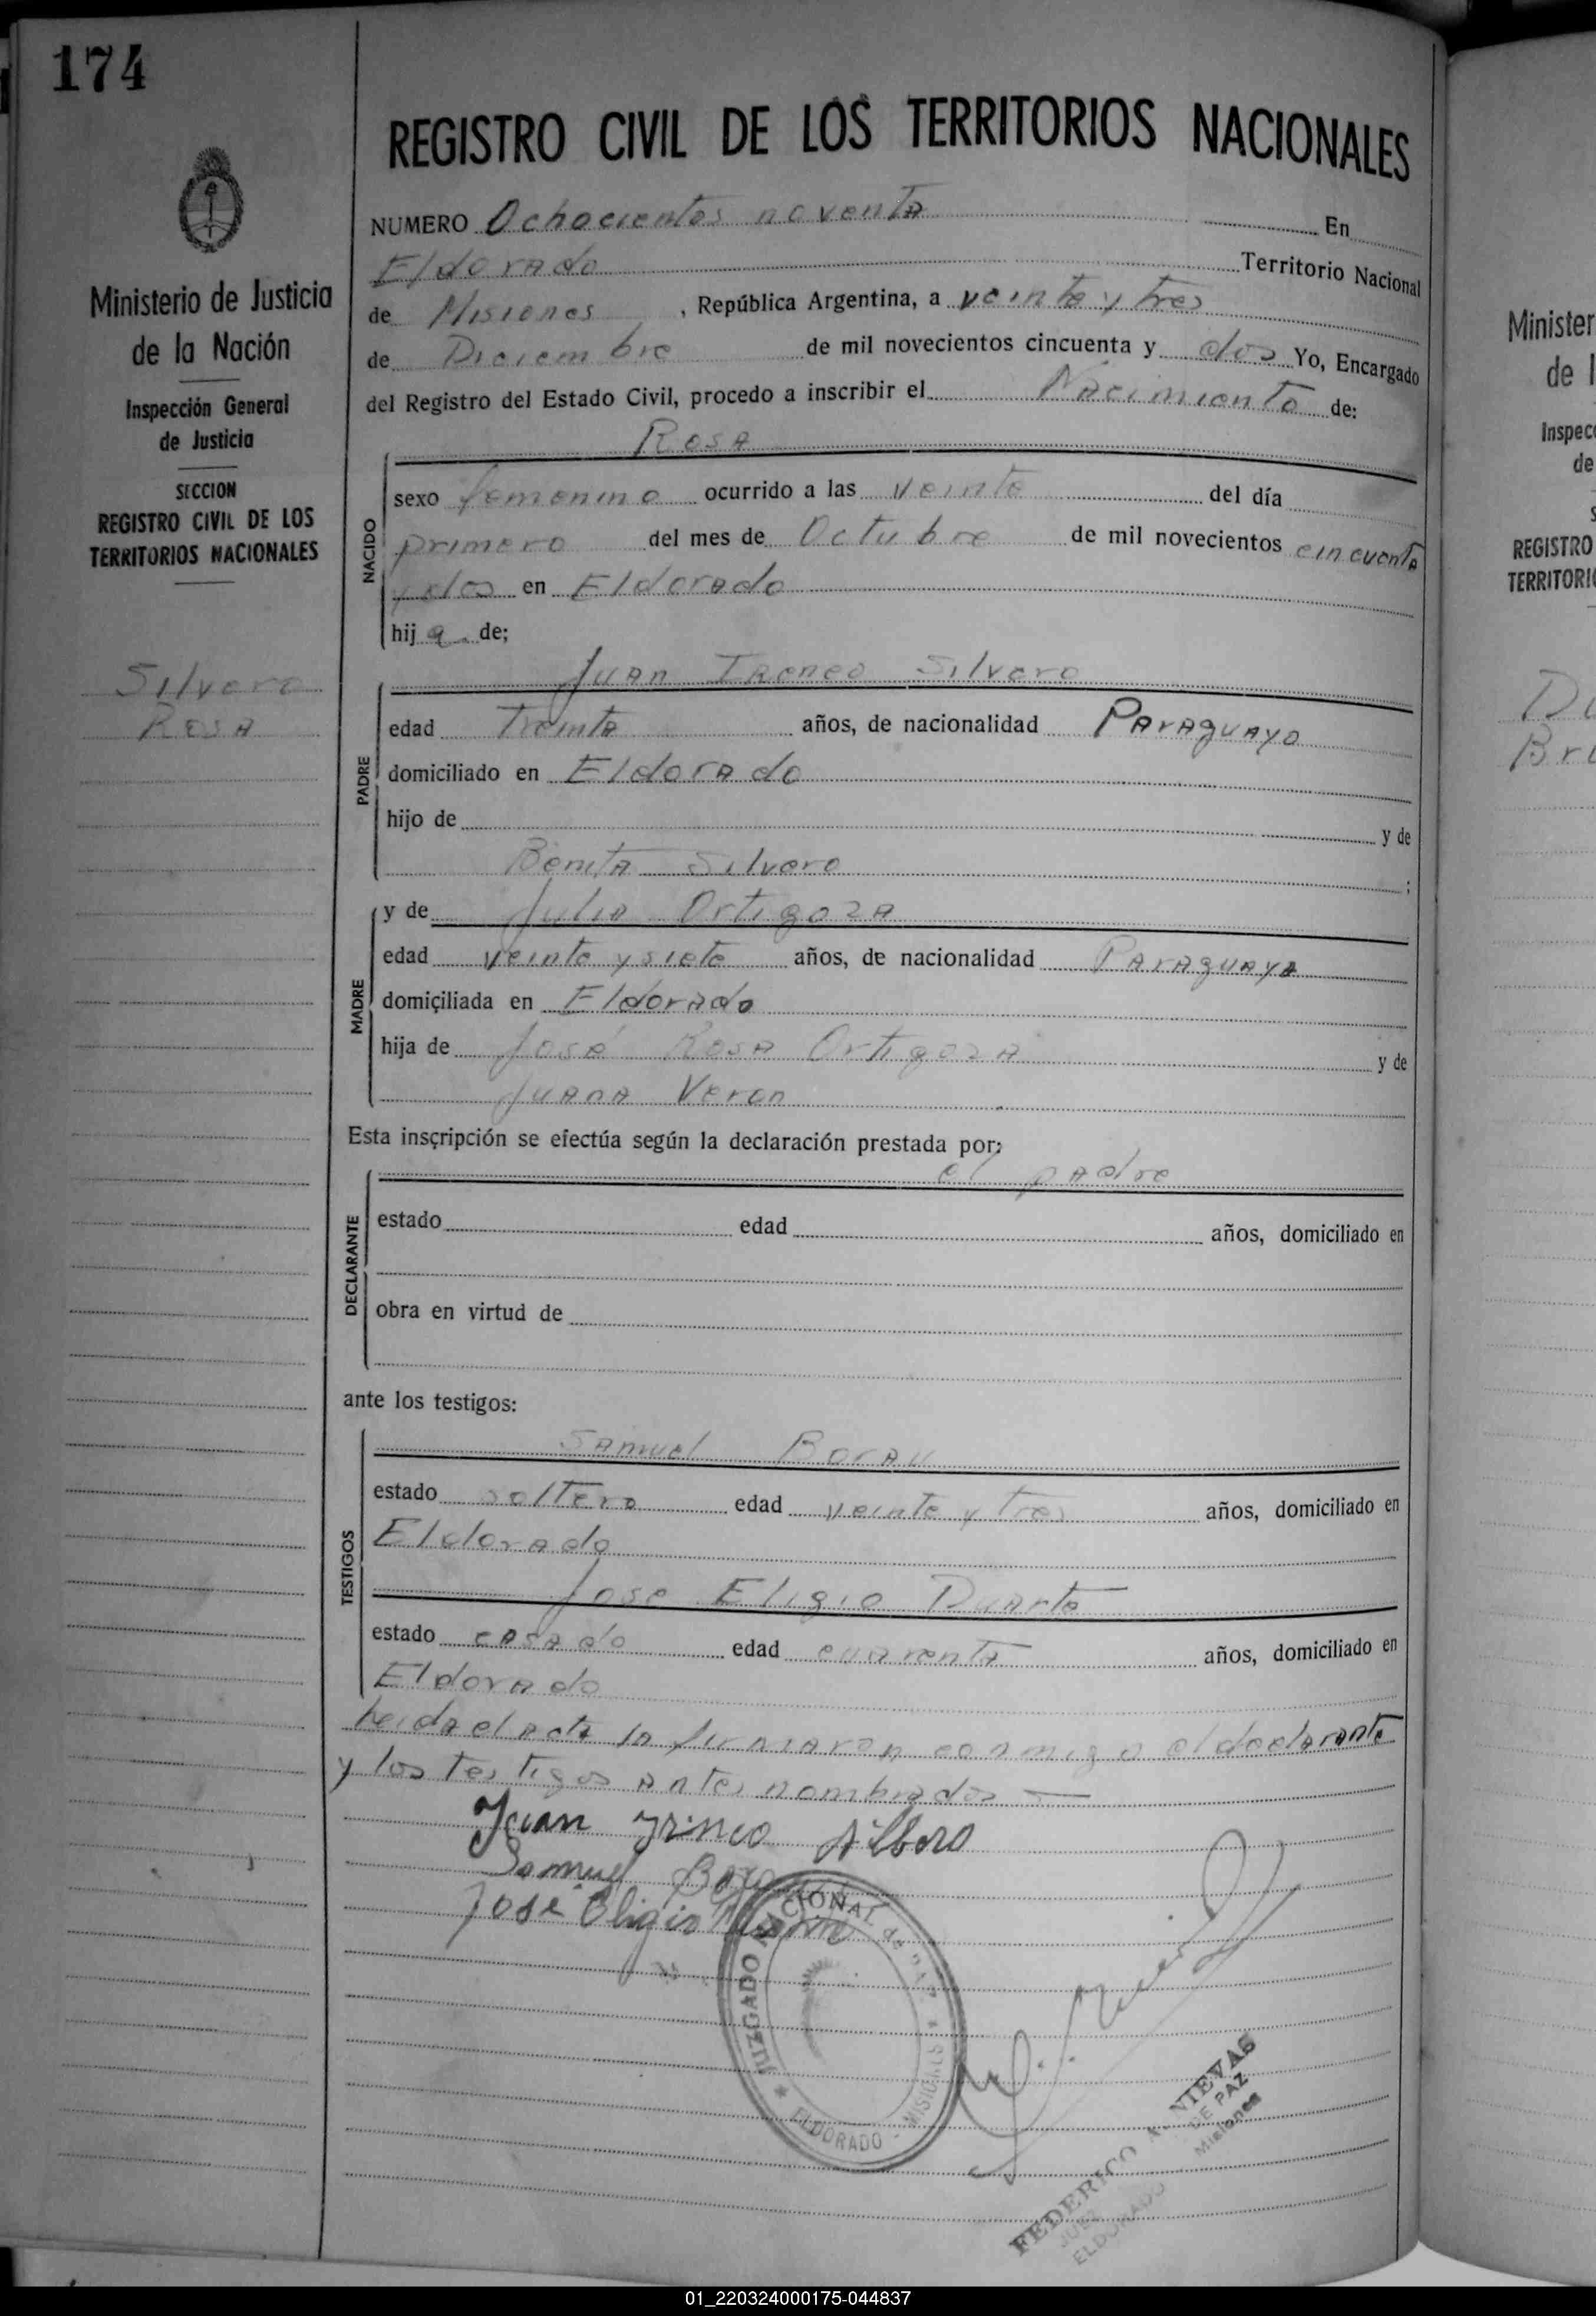 174
REGISTRO CIVIL DE LOS TERRITORIOS NACIONALES
Ministerio de Justicia
de la Nación
Inspección General
de Justicia
SECCION
REGISTRO CIVIL DE LOS
TERRITORIOS NACIONALES
Silvero
Rosa
NUMERO Ochocientos noventa En
Eldorado Territorio Nacional
de Misiones, República Argentina, a veinte y tres
de Diciembre de mil novecientos cincuenta y dos Yo, Encargado
del Registro del Estado Civil, procedo a inscribir el Nacimiento de:
Rosa
NACIDO
sexo femenino ocurrido a las veinte del día
primero del mes de Octubre de mil novecientos cincuenta
y dos en Eldorado
hija de;
Juan Ireneo Silvero
PADRE
edad Treinta años, de nacionalidad Paraguayo
domiciliado en Eldorado
hijo de y de
Benita Silvero ;
MADRE
y de Julia Ortigoza
edad veinte y siete años, de nacionalidad Paraguaya
domiciliada en Eldorado
hija de José Rosa Ortigoza y de
Juana Veron
Esta inscripción se efectúa según la declaración prestada por:
el padre
DECLARANTE
estado edad años, domiciliado en
obra en virtud de
ante los testigos:
TESTIGOS
Samuel Borau
estado soltero edad veinte y tres años, domiciliado en
Eldorado
Jose Eligio Duarte
estado casado edad cuarenta años, domiciliado en
Eldorado
Leida el acta la firmaron conmigo el declarante
y los testigos antes nombrados —
Juan Irineo Silbero
Samuel
Jose Eligio
JUZGADO NACIONAL de PAZ
ELDORADO - MISIONES
FEDERICO A. NIEVAS
JUEZ DE PAZ
ELDORADO Misiones
Minister
de l
Inspec
de
S
REGISTRO
TERRITORI
Du
Br
01_220324000175-044837